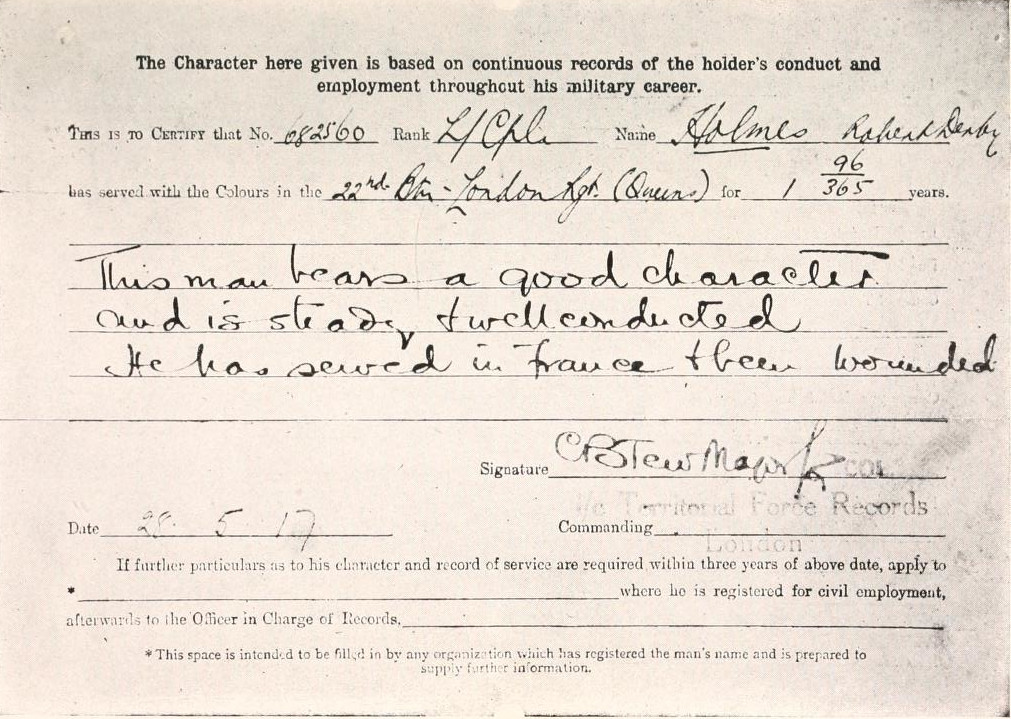 The Character here given is based on continuous records of the holder's conduct and
employment throughout his military career.
THIS IS TO CERTIFY that No. 682560 Rank L/Cpl. Name Holmes Robert Derby
has served with the Colours in the 22nd Btn - London Rgt. (Queens) for 1 96/365 years.
This man bears a good character
and is steady & well conducted
He has served in France & been wounded
Signature Major for COL.
i/c Territorial Force Records
Date 28 5 17 Commanding
London
If further particulars as to his character and record of service are required within three years of above date, apply to
* where he is registered for civil employment,
afterwards to the Officer in Charge of Records,
* This space is intended to be filled in by any organization which has registered the man's name and is prepared to
supply further information.